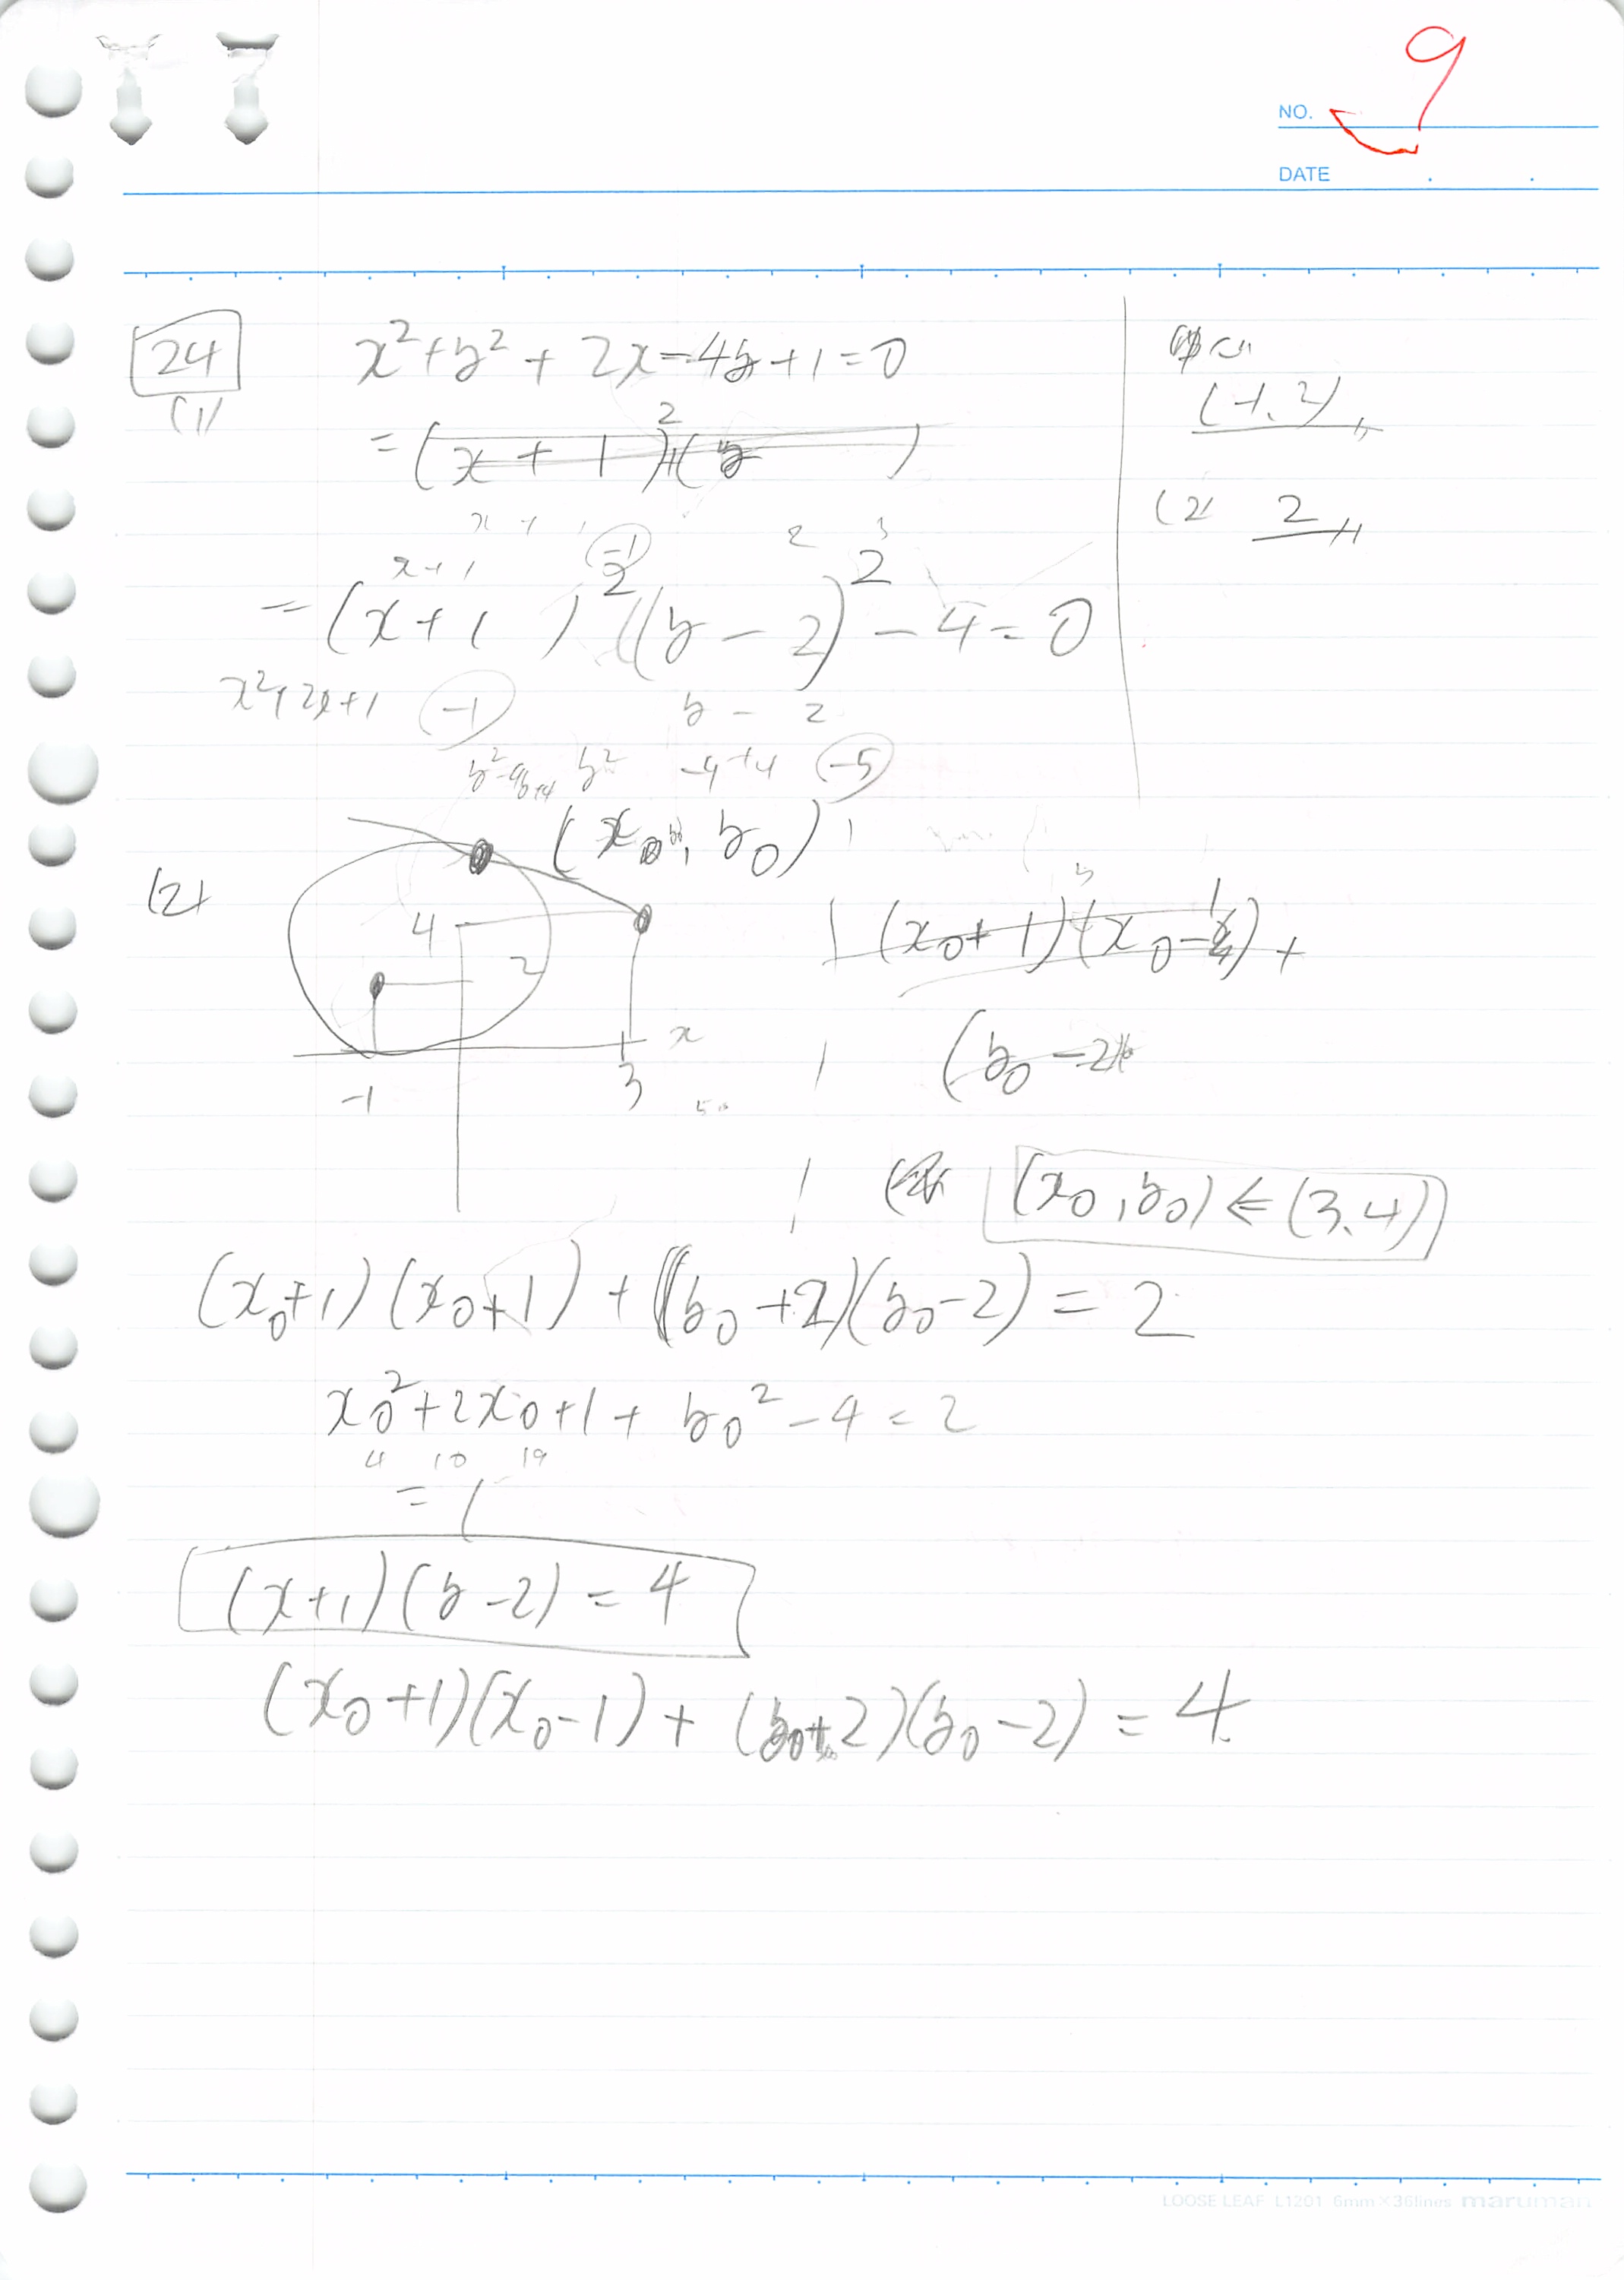 9
NO.
DATE
24
(1)
x²+y²+2x-4y+1=0
=(x+1)²+(y )
x+1
=(x+1)²+(y-2)²-4=0
x²+2x+1 -1
y-2
y²-4y+4 y² -4+4 -5
中心
(-1,2)
(2) 2
(2)
(x₀, y₀)
4
2
-1
3
x
(x₀+1)(x₀-1)+
(y₀-2)
(x₀, y₀) ← (3.4)
(x₀+1)(x₀+1)+(y₀+2)(y₀-2)=2
x₀²+2x₀+1+y₀²-4=2
4 10 19
= (
(x+1)(y-2)=4
(x₀+1)(x₀-1)+(y₀+2)(y₀-2)=4
LOOSE LEAF L1201 6mm×36lines maruman